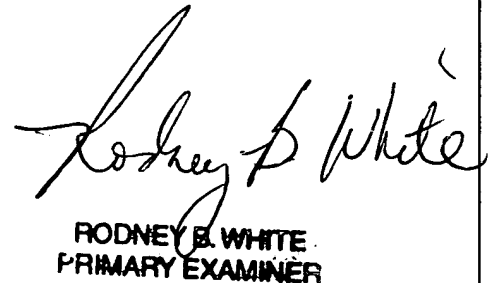 Rodney B White
RODNEY B. WHITE
PRIMARY EXAMINER